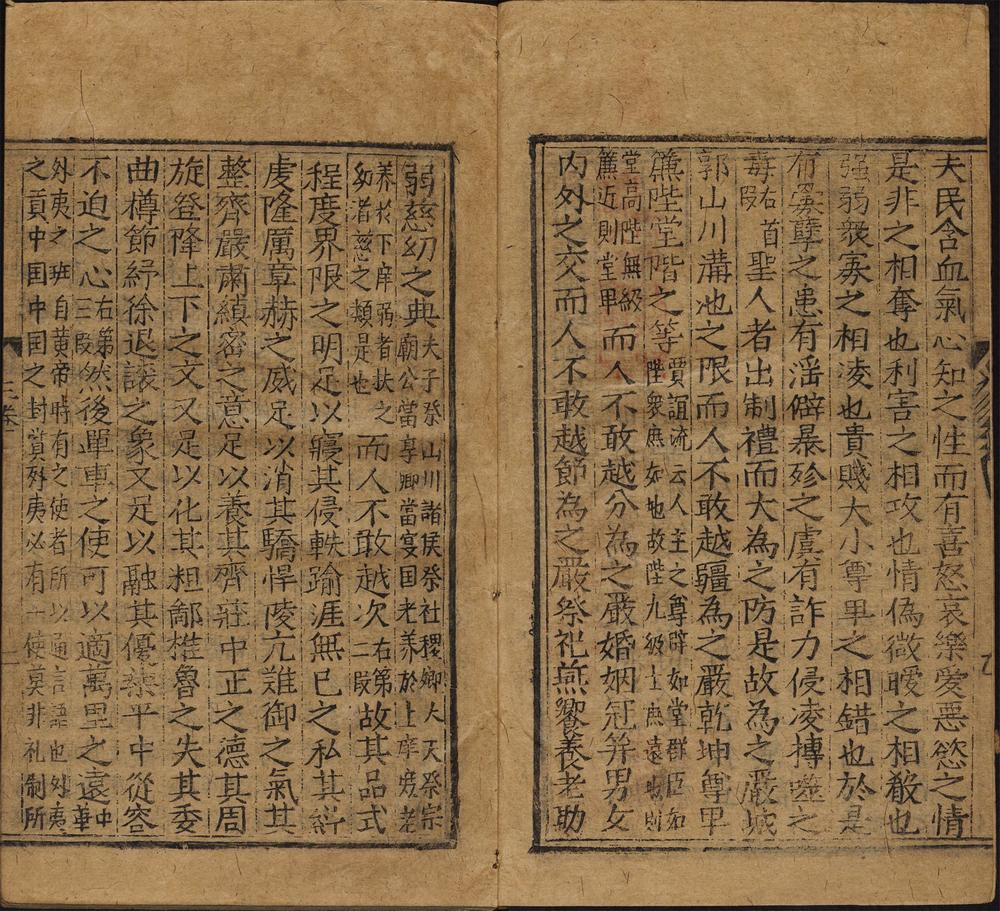 夫民含血氣心知之性而有喜怒哀樂愛惡慾之情
是非之相奪也利害之相攻也情偽微曖之相殽也
强弱衆寡之相凌也貴賤大小尊卑之相錯也於是
有冢孽之患有滛僻暴殄之虐有詐力侵凌摶噬之
毒右首段聖人者出制禮而大為之防是故為之嚴城
郭山川溝池之限而人不敢越疆為之嚴乾坤尊卑
簾陛堂階之等賈誼流云人主之尊辟如堂群臣如陛衆庶如地故陛九級上庶遠地則
堂高陛無級簾近則堂卑而人不敢越分為之嚴婚姻冠筓男女
內外之交而人不敢越節為之嚴祭祀燕饗養老助
弱慈幼之典夫子祭山川諸侯祭社稷卿大天祭宗廟公當享卿當宴国老养於上庠庻老
养於下庠弱者扶之幼者慈之類是也而人不敢越次右第二段故其品式
程度界限之明足以寢其侵軼踰涯無已之私其紆
虔隆厲章赫之威足以消其驕悍陵亢難御之氣其
整齊嚴肅縝密之意足以養其齊莊中正之德其周
旋登降上下之文又足以化其粗鄙椎魯之失其委
曲樽節紓徐退讓之象文足以融其優柔平中從容
不迫之心右第三段然後單車之使可以適萬里之遠中華
外夷之班自黄帝時有之使者所以通言語也外夷
之貢中国中国之封賞外夷必有一使莫非礼制所
三卷